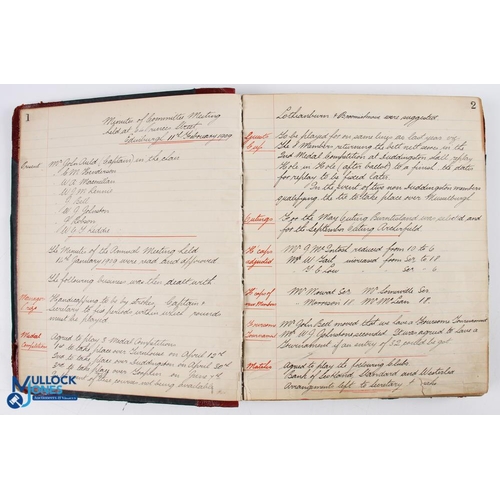 1
Minutes of Committee Meeting
held at Princes Street
Edinburgh 11th February 1909
Present
Mr John (Captain) in the chair
C. M. Henderson
W. A. Macmillan
W. J. M.
J. Bell
W. J. Johnston
J. Hobson
W. C. J. Geddes
The Minutes of the Annual Meeting held
January 1909 were read and approved
The following business was then dealt with
Handicapping to be by strokes. Captain &
Secretary to fix periods within which rounds
must be played.
Medal
Competitions
Agreed to play 3 Medal Competitions
1st to take place over on April
2nd to take place over Luddingston on April 30th
to take place over on June
of this course not being available
MULLOCK
JONES
2
Lothianburn & were suggested.
Cup
To be played for on same lines as last year viz
The 8 Members returning the best nett scores in the
2nd Medal Competition at Luddingston shall replay
Hole on Hole (after ballot) to a final, the dates
for replay to be fixed later.
In the event of two non Luddingston members
qualifying the tie to take place over Musselburgh
Outings
For the May Outing Burntisland was selected and
for the September Outing Archerfield.
H'caps
adjusted
Mr J. McIntosh reduced from 13 to 6
Mr W. Tait increased from Scr to 18
J. C. Low Scr 6
H'caps of
new Members
Mr Mowat Scr. Mr Scr
Morrison 18. Mr McLean 18.
Foursome
Tournament
Mr John Bell moved that we have a Foursome Tournament
Mr W. J. Johnston seconded. It was agreed to have a
Tournament if an entry of 32 could be got
Matches
Agreed to play the following Clubs
Bank of Scotland, Standard and Westerlea
Arrangements left to Secretary